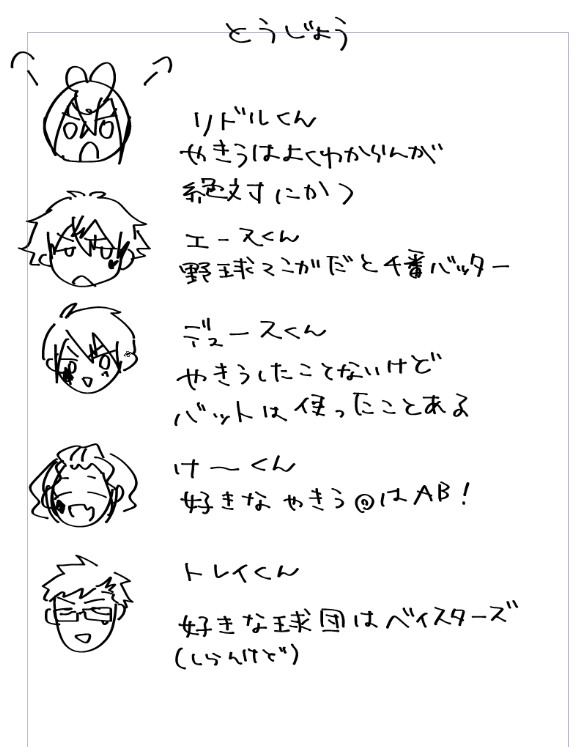 とうじょう
リドルくん
やきうはよくわからんが
絶対にかつ
エースくん
野球マンガだと4番バッター
デュースくん
やきうしたことないけど
バットは使ったことある
けーくん
好きなやきう@はAB!
トレイくん
好きな球団はベイスターズ
(しらんけど)